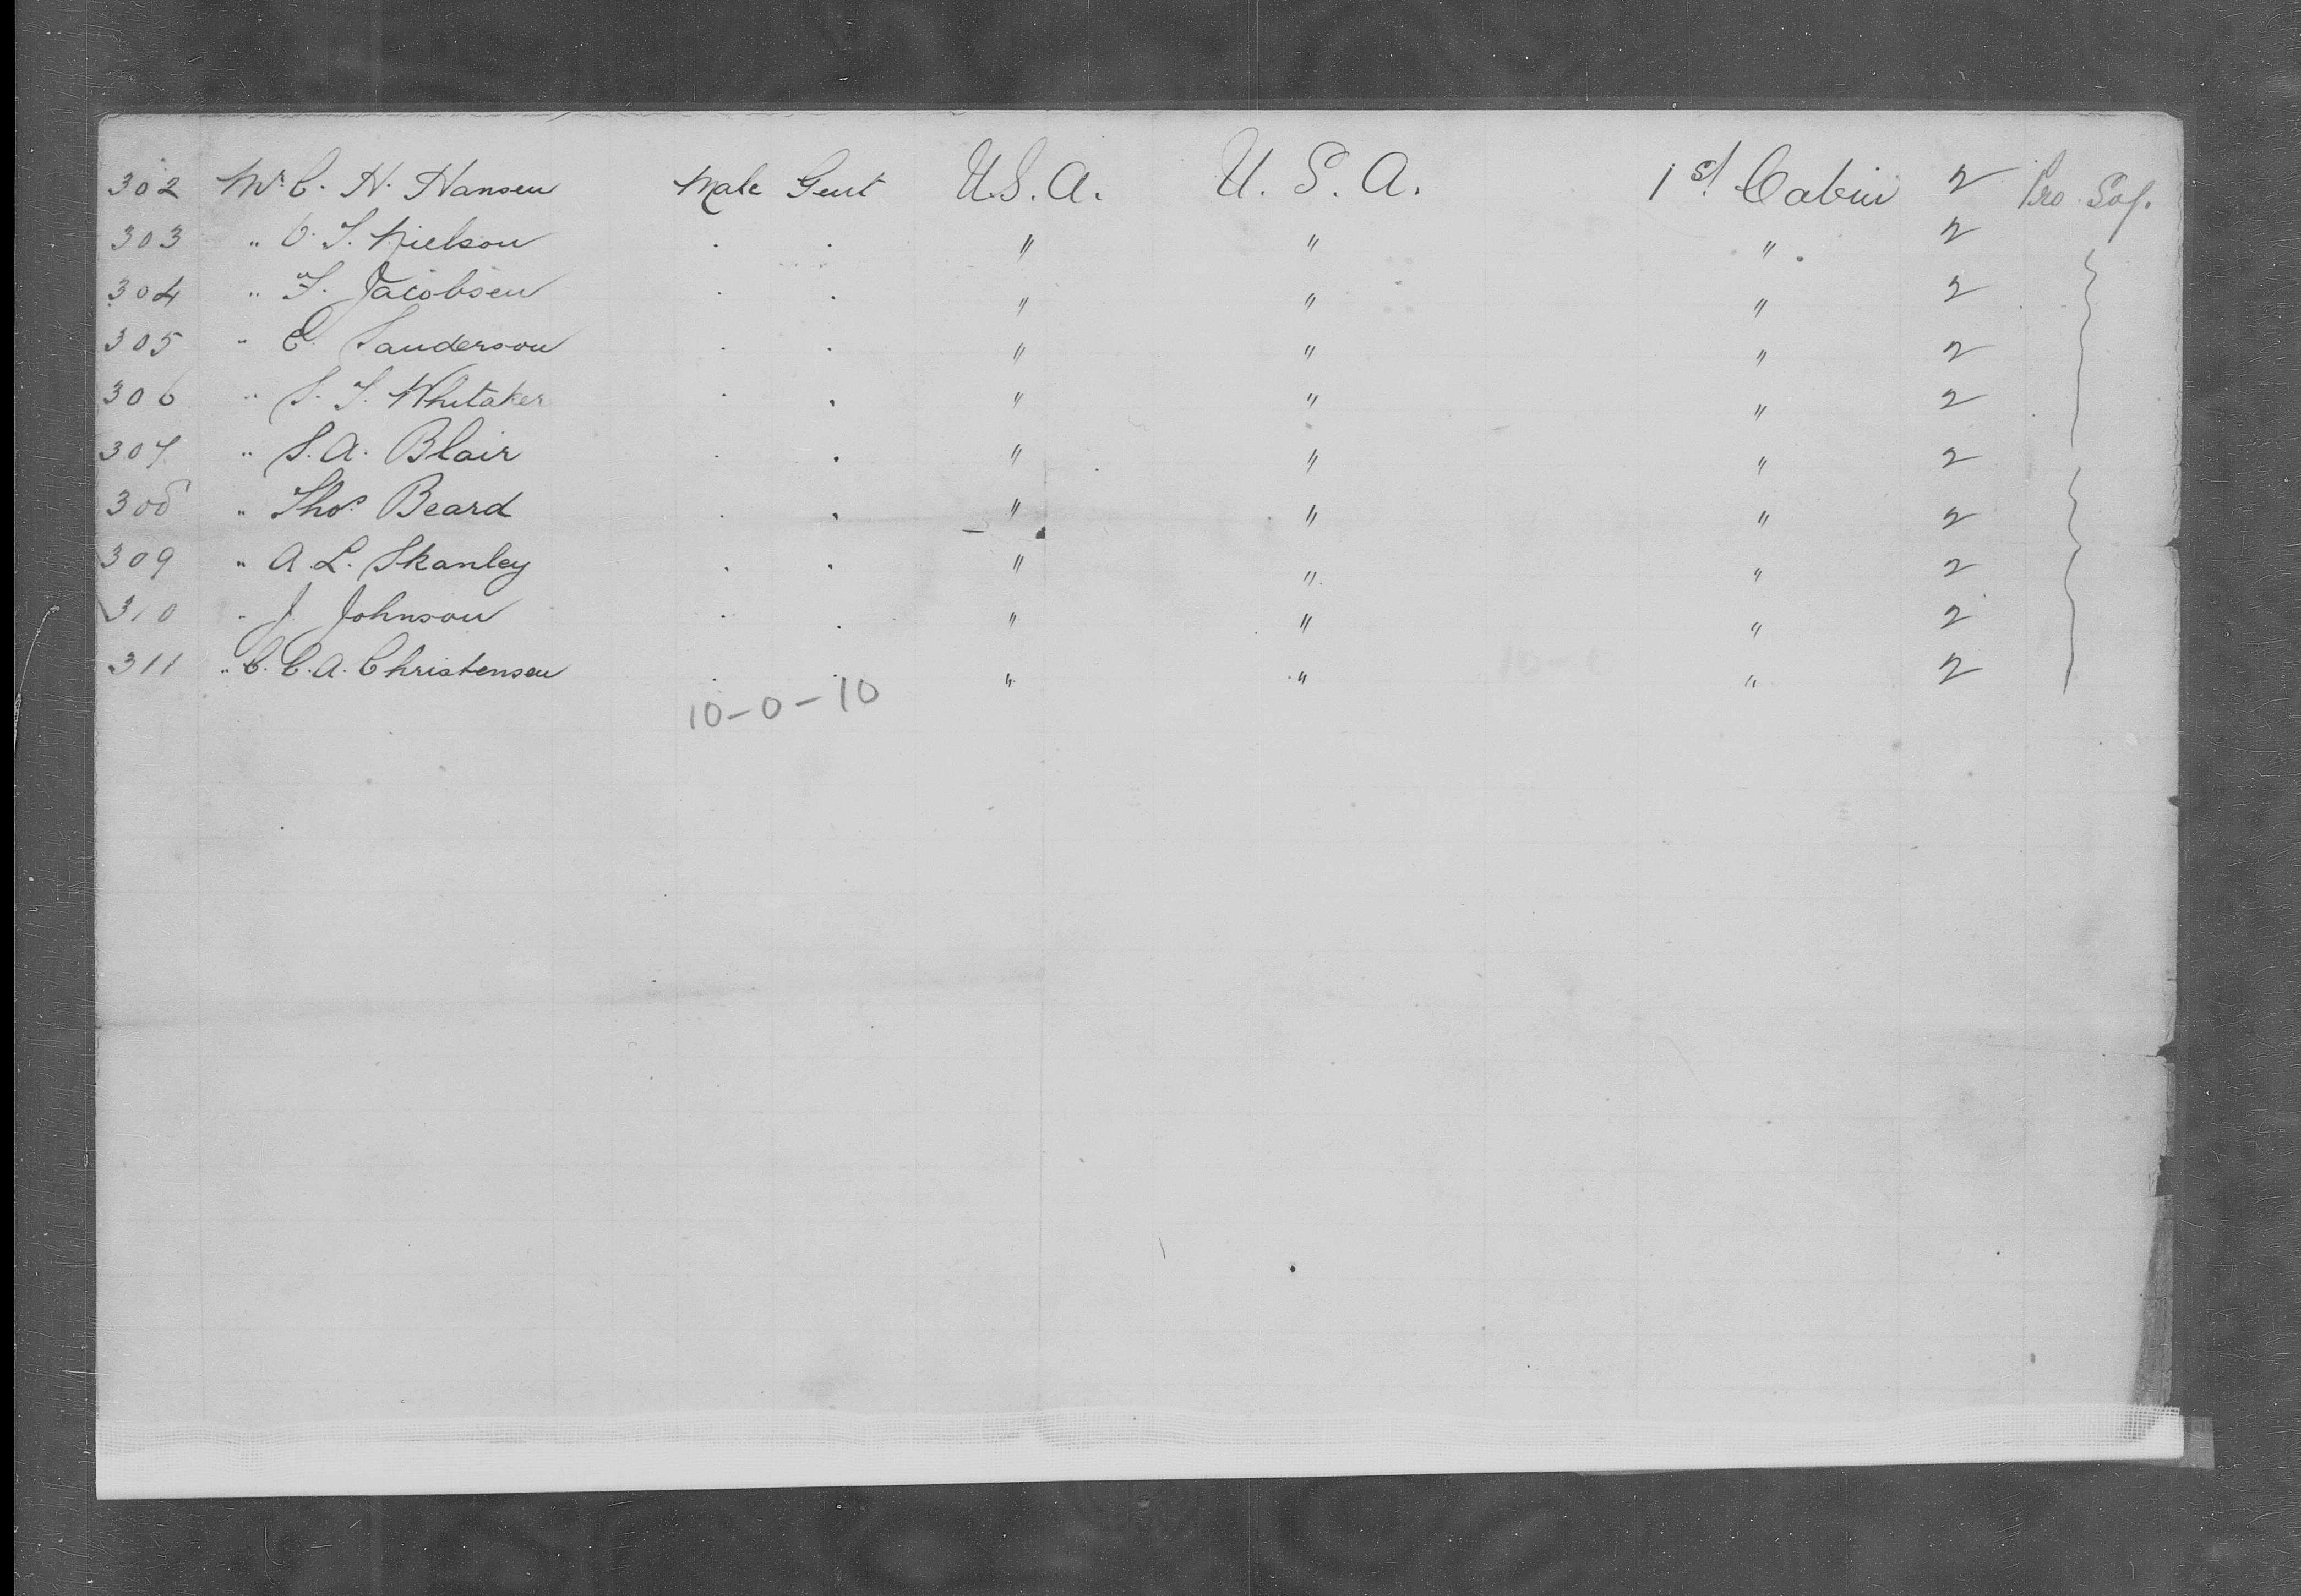 302 Mr. C. H. Hansen Male Gent U.S.A. U. S. A. 1st Cabin 2 Pro Soj.
303 " C. F. Nielson . . " " " 2
304 " F. Jacobsen . . " " " 2
305 " C. Sanderson . . " " " 2
306 " S. F. Whitaker . . " " " 2
307 " S. A. Blair . . " " " 2
308 " Thos. Beard . . " " " 2
309 " A. L. Skanley . . " " " 2
310 " J. Johnson . . " " " 2
311 " C. C. A. Christensen . . " " " 2
10-0-10